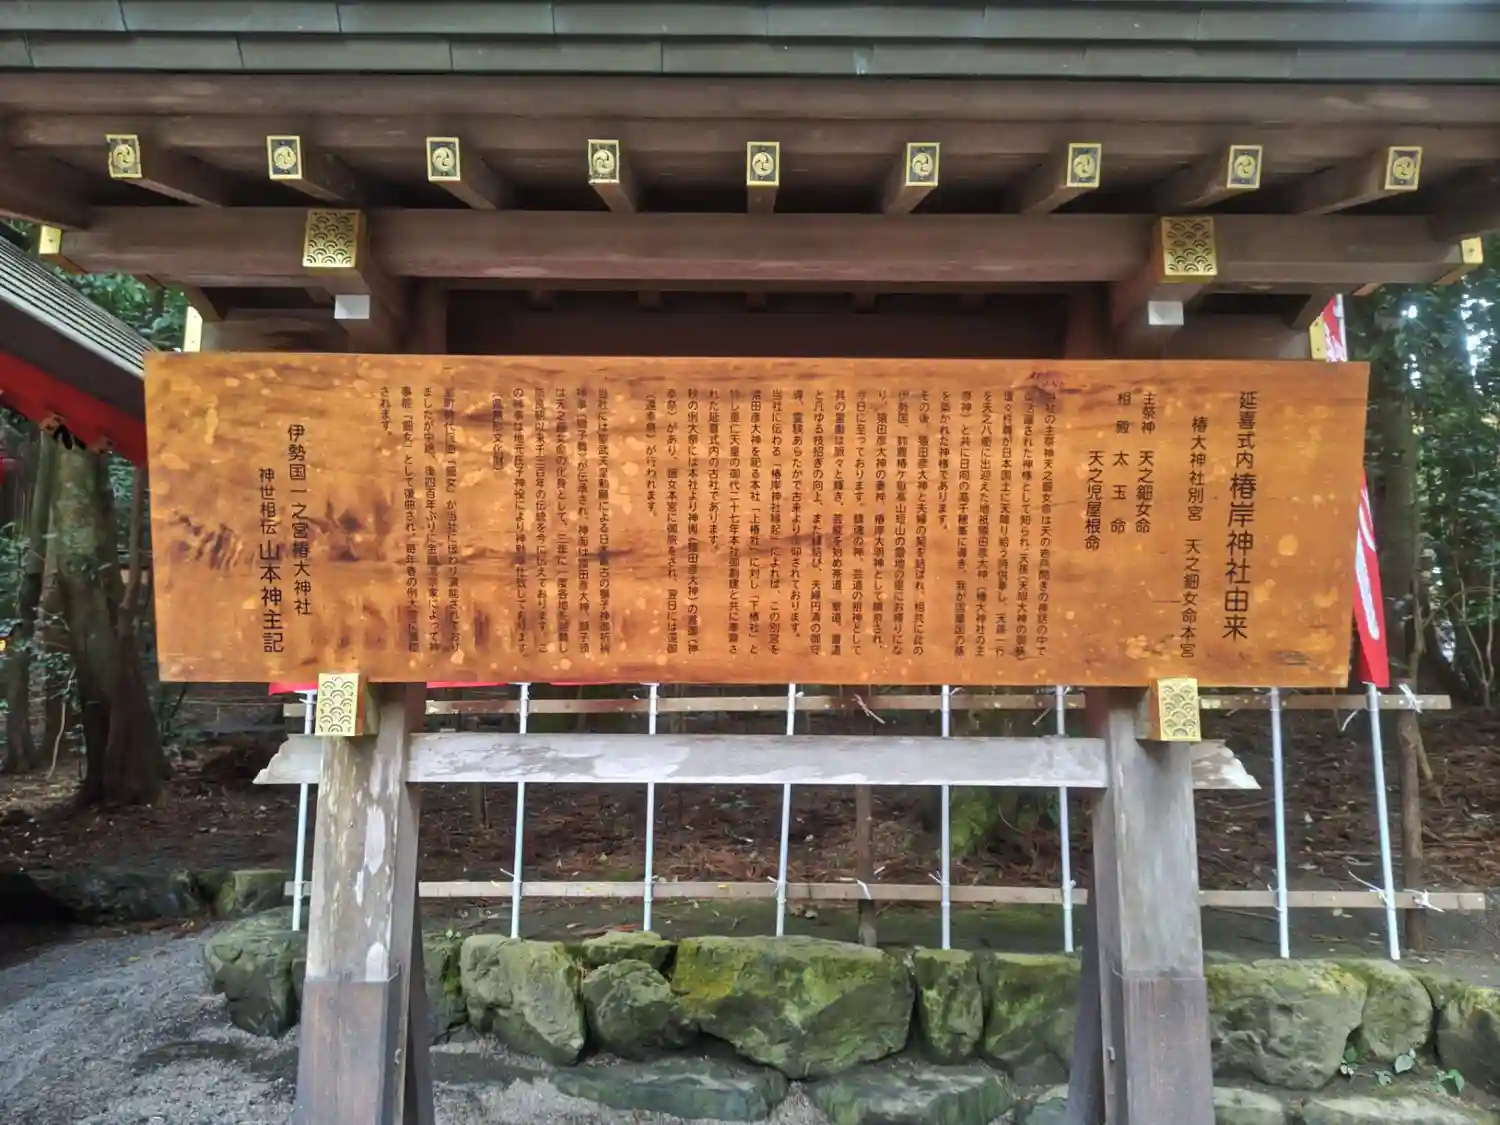 延喜式内 椿岸神社由来
椿大神社別宮 天之鈿女命本宮
主祭神 天之鈿女命
相殿 太玉命
天之児屋根命
当社の主祭神天之鈿女命は天の岩戸開きの神話の中で
を天之八衢に出迎えた地祇猿田彦大神（椿大神社の主
祭神）と共に日向の高千穂峯に導き、我が国肇国の基
を築かれた神様であります。
その後、猿田彦大神と夫婦の契を結ばれ、相共に此の
伊勢国、鈴鹿椿ヶ嶽高山短山の霊地の里にお帰りにな
り、猿田彦大神の妻神、椿岸大明神として鎮祭され、
今日に至っております。鎮魂の神、芸道の祖神として
其の霊徳は脈々と輝き、芸能を始め茶道、華道、書道
と凡ゆる技招ぎの向上、また縁結び、夫婦円満の御守
導、霊験あらたかで古来より信仰されております。
当社に伝わる「椿岸神社縁起」によれば、この別宮を
猿田彦大神を祀る本社「上椿社」に対し「下椿社」と
称し垂仁天皇の御代二十七年本社御創建と共に奉斎さ
れた延喜式内の古社であります。
秋の例大祭には本社より神輿（猿田彦大神）の渡御（神
幸祭）があり、鈿女本宮に御旅をされ、翌日には還御
（還幸祭）が行われます。
当社には聖武天皇勅願による日本最古の獅子神御祈祷
神事（獅子舞）が伝承され、神面は猿田彦大神、獅子頭
は天之鈿女命の化身として、三年に一度各地を巡舞し
奈良朝以来千三百年の伝統を今に伝えております。こ
の神事は地元氏子神役により神勤奉仕致しております
（県無形文化財）
ましたが中絶、後四百年ぶりに金剛流宗家によって神
事能「鈿女」として復曲され、毎年春の例大祭に奉納
されます。
伊勢国一之宮椿大神社
神世相伝 山本神主記